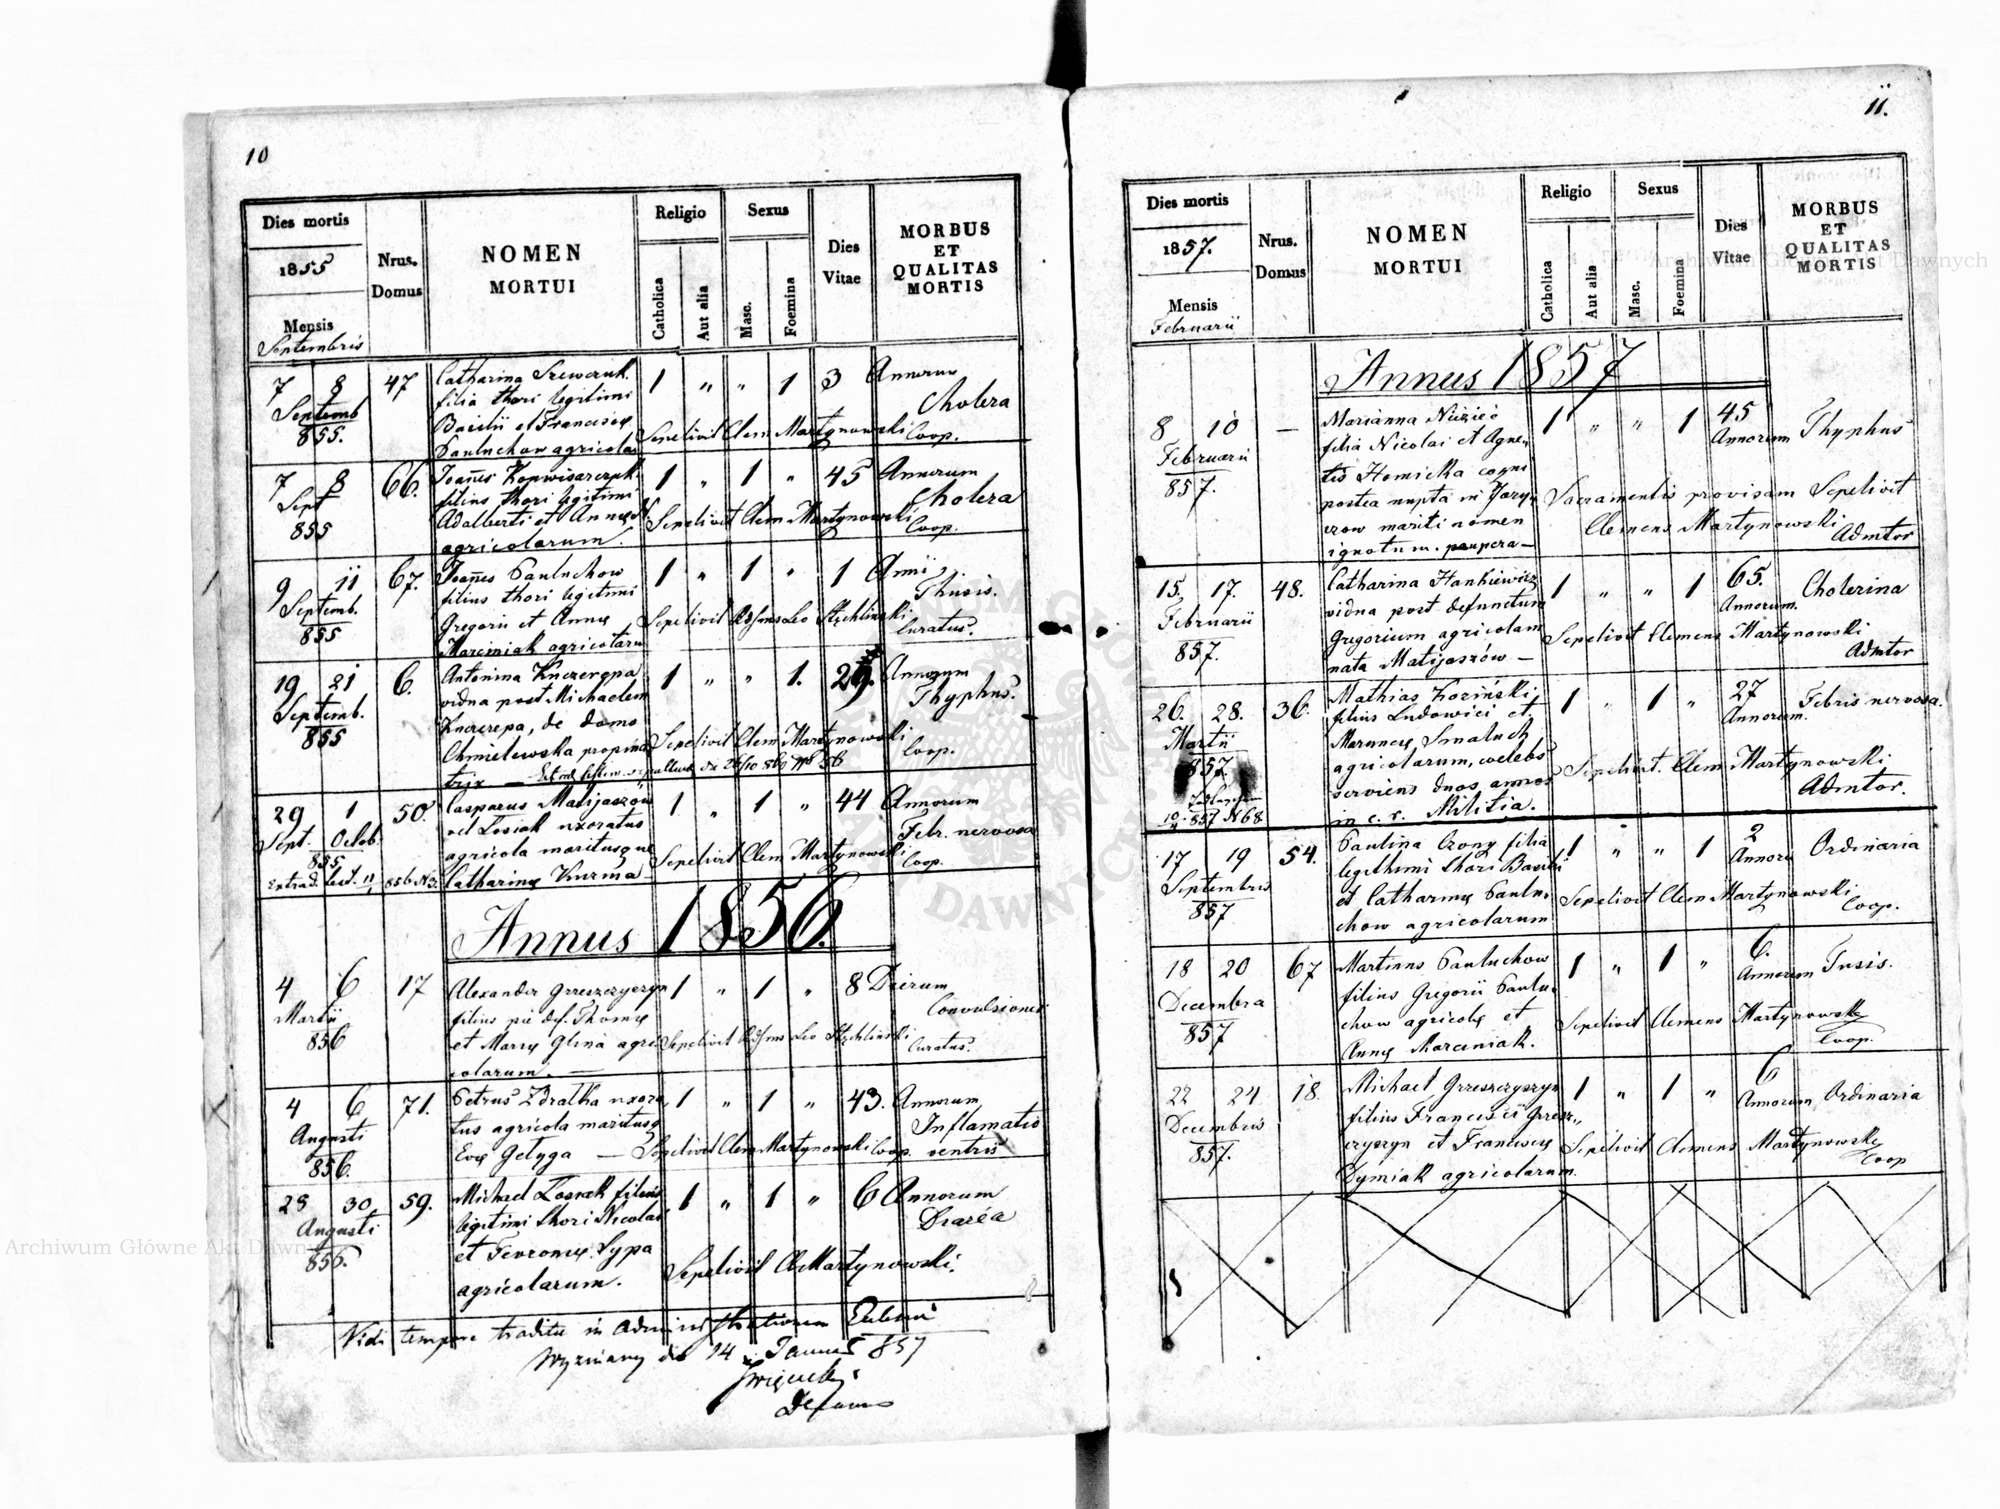 10
Dies mortis
1855
Mensis
Septembris
Nrus.
Domus
NOMEN
MORTUI
Religio
Catholica
Aut alia
Sexus
Masc.
Foemina
Dies
Vitae
MORBUS
ET
QUALITAS
MORTIS
7 8 47 Catharina Szewczuk 1 " " 1 3 Annorum
Septemb filia thori legitimi Cholera
855. Basilii et Franciscæ Sepelivit Clem Martynowski Coop.
Pauluchow agricolar
7 8 66. Joañes Kopwisarczuk 1 " 1 " 45 Annorum
Sept filius thori legitimi Cholera
855 Adalberti et Annæ Sepelivit Clem Martynowski Coop.
agricolarum.
9 11 67. Joañes Pauluchow 1 " 1 " 1 Anni
Septemb. filius thori legitimi Thusis.
855 Gregorii et Annæ Sepelivit Leo Stęchlinski Curatus.
Marciniak agricolaru
19 21 6. Antonina Knezrepa 1 " " 1. 29. Annorum
Septemb. vidua post Michaelem Thyphus.
855 Knezrepa, de domo
Chmielewska propina Sepelivit Clem Martynowski Coop.
trix —
29 1 50. Casparus Matijaszów 1 " 1 " 44 Annorum
Sept. Octob. vel Łosiak uxoratus Febr. nervosa
855 agricola maritusque Sepelivit Clem Martynowski Coop.
Extrad. 856 Catharinæ Kuzma
Annus 1856.
4 6 17 Alexander Grzeszczyszyn 1 " 1 " 8 Dierum
Martii filius pie def. Thomæ Convulsiones
856 et Mariæ Glina agri Sepelivit Leo Stęchlinski Curatus.
colarum. —
4 6 71. Petrus Zdralka uxora 1 " 1 " 43. Annorum
Augusti tus agricola maritusq Inflamatio
856. Evæ Getyga — Sepelivit Clem Martynowski Coop. ventris
28 30 59. Michael Łosiak filius 1 " 1 " 6 Annorum
Augusti legitimi thori Nicolai Diaréa
856. et Fevroniæ Lypa
agricolarum. Sepelivit Cl Martynowski.
Vidi tempore traditæ in administrationem Ecclesiæ
14 857
11.
Dies mortis
1857.
Mensis
Februarii
Nrus.
Domus
NOMEN
MORTUI
Religio
Catholica
Aut alia
Sexus
Masc.
Foemina
Dies
Vitae
MORBUS
ET
QUALITAS
MORTIS
Annus 1857
8 10 — Marianna 1 " " 1 45 Thyphus
Februarii filia Nicolai et Agne Annorum
857. tis Homicka
postea nupta in Jary Sacramentis provisam Sepelivit
czow mariti nomen Clemens Martynowski
ignotum. paupera — Admtor
15. 17. 48. Catharina Hankiewicz 1 " " 1 65. Cholerina
Februarii vidua post defunctum Annorum.
857. Gregorium agricolam Sepelivit Clemens Martynowski
nata Matijaszów — Admtor
26. 28. 36. Mathias Koziński 1 " 1 " 27 Febris nervosa.
Martii filius Ludovici et Annorum.
857. Mariannæ Smaluch
agricolarum, coelebs Sepelivit. Clem Martynowski
serviens duos annos Admtor.
857 N 68 in c. r. Militia.
17 19 54. Paulina Crony filia 1 " " 1 2 Ordinaria
Septembris legithimi thori Basilii Annoru
857 et Catharinæ Paulu Sepelivit Clem Martynowski
chow agricolarum Coop.
18 20 67 Martinus Pauluchow 1 " 1 " 6. Tusis.
Decembra filius Gregorii Paulu Annorum
857 chow agricolæ et Sepelivit Clemens Martynowski
Annæ Marciniak. Coop.
22 24 18. Michael Grzeszczyszyn 1 " 1 " 6 Ordinaria
Decembris filius Francisci Grzesz Annorum
857. czyszyn et Franciscæ Sepelivit Clemens Martynowski
Dymiak agricolarum. Coop
Archiwum Główne Akt Dawnych